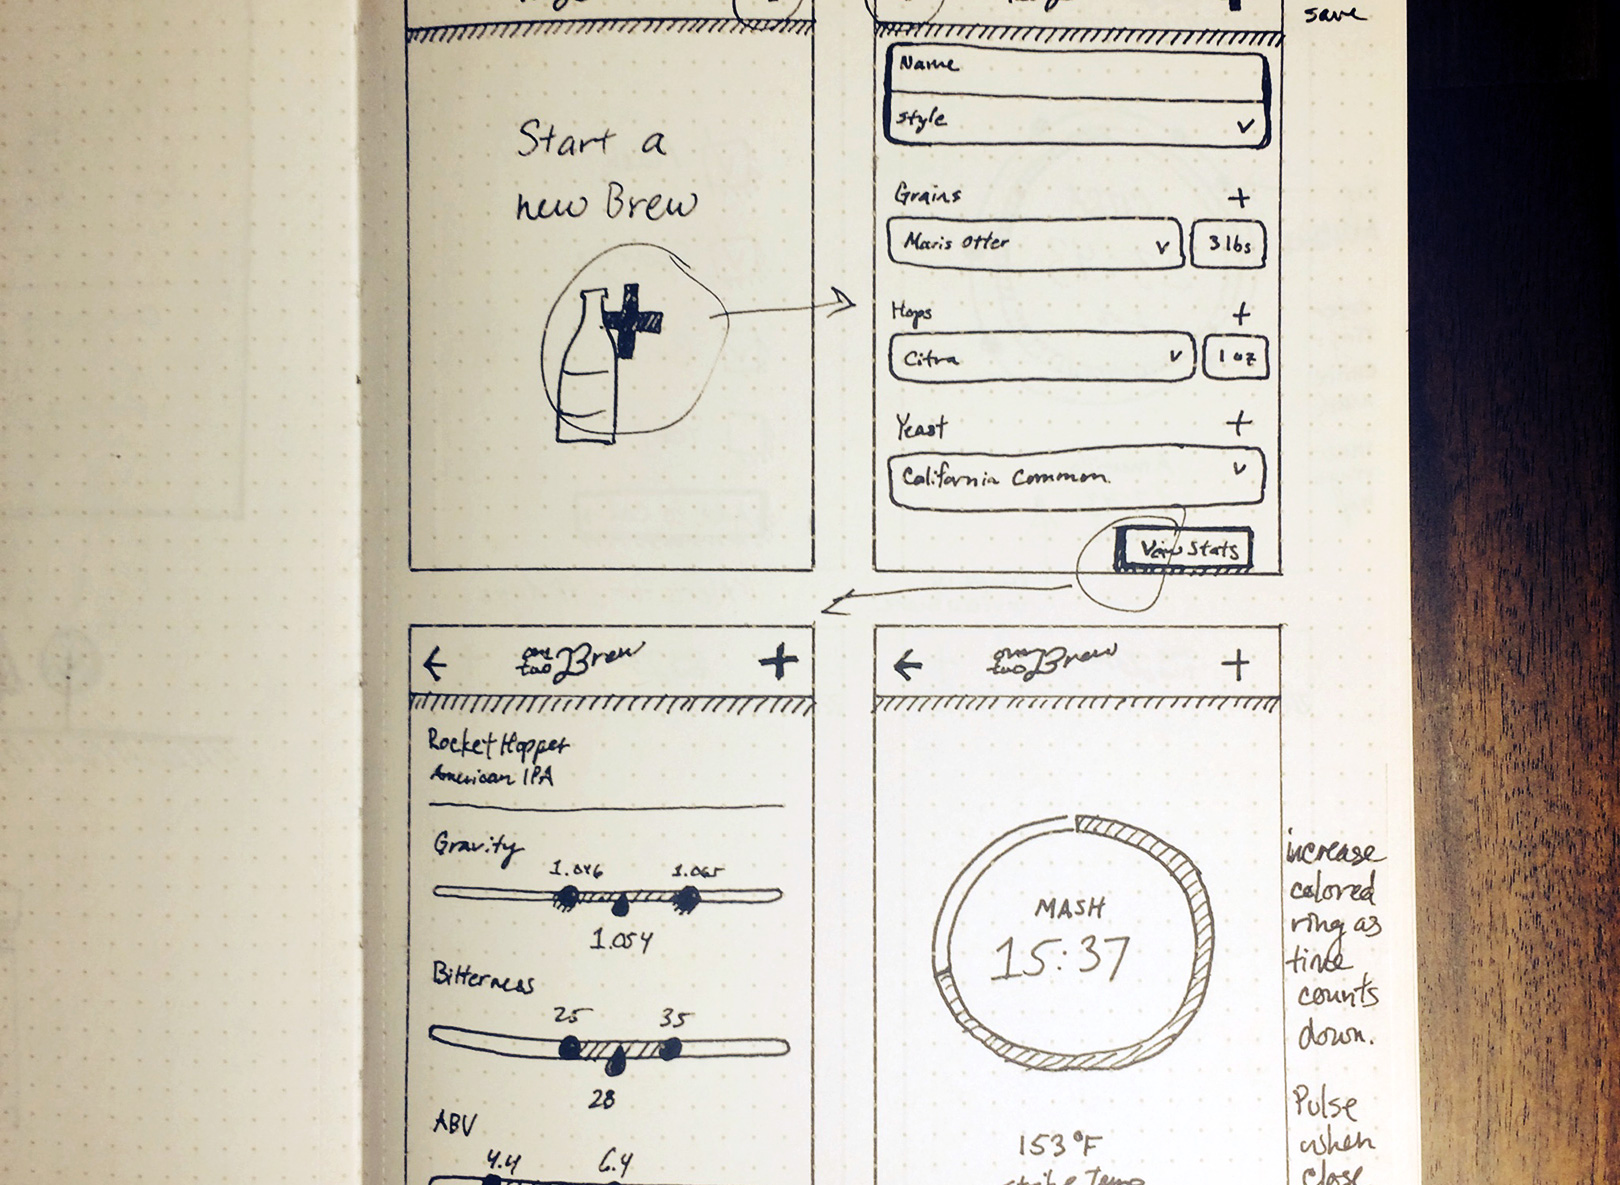 save
Start a
new Brew
Name
Style
Grains +
Maris Otter
3 lbs
Hops +
Citra
1 oz
Yeast +
California Common
View Stats
one two Brew +
Rocket Hopper
American IPA
Gravity
1.046 1.065
1.054
Bitterness
25 35
28
ABV
4.4 6.4
one two Brew +
MASH
15:37
153°F
increase
colored
ring as
time
counts
down.
Pulse
when
close